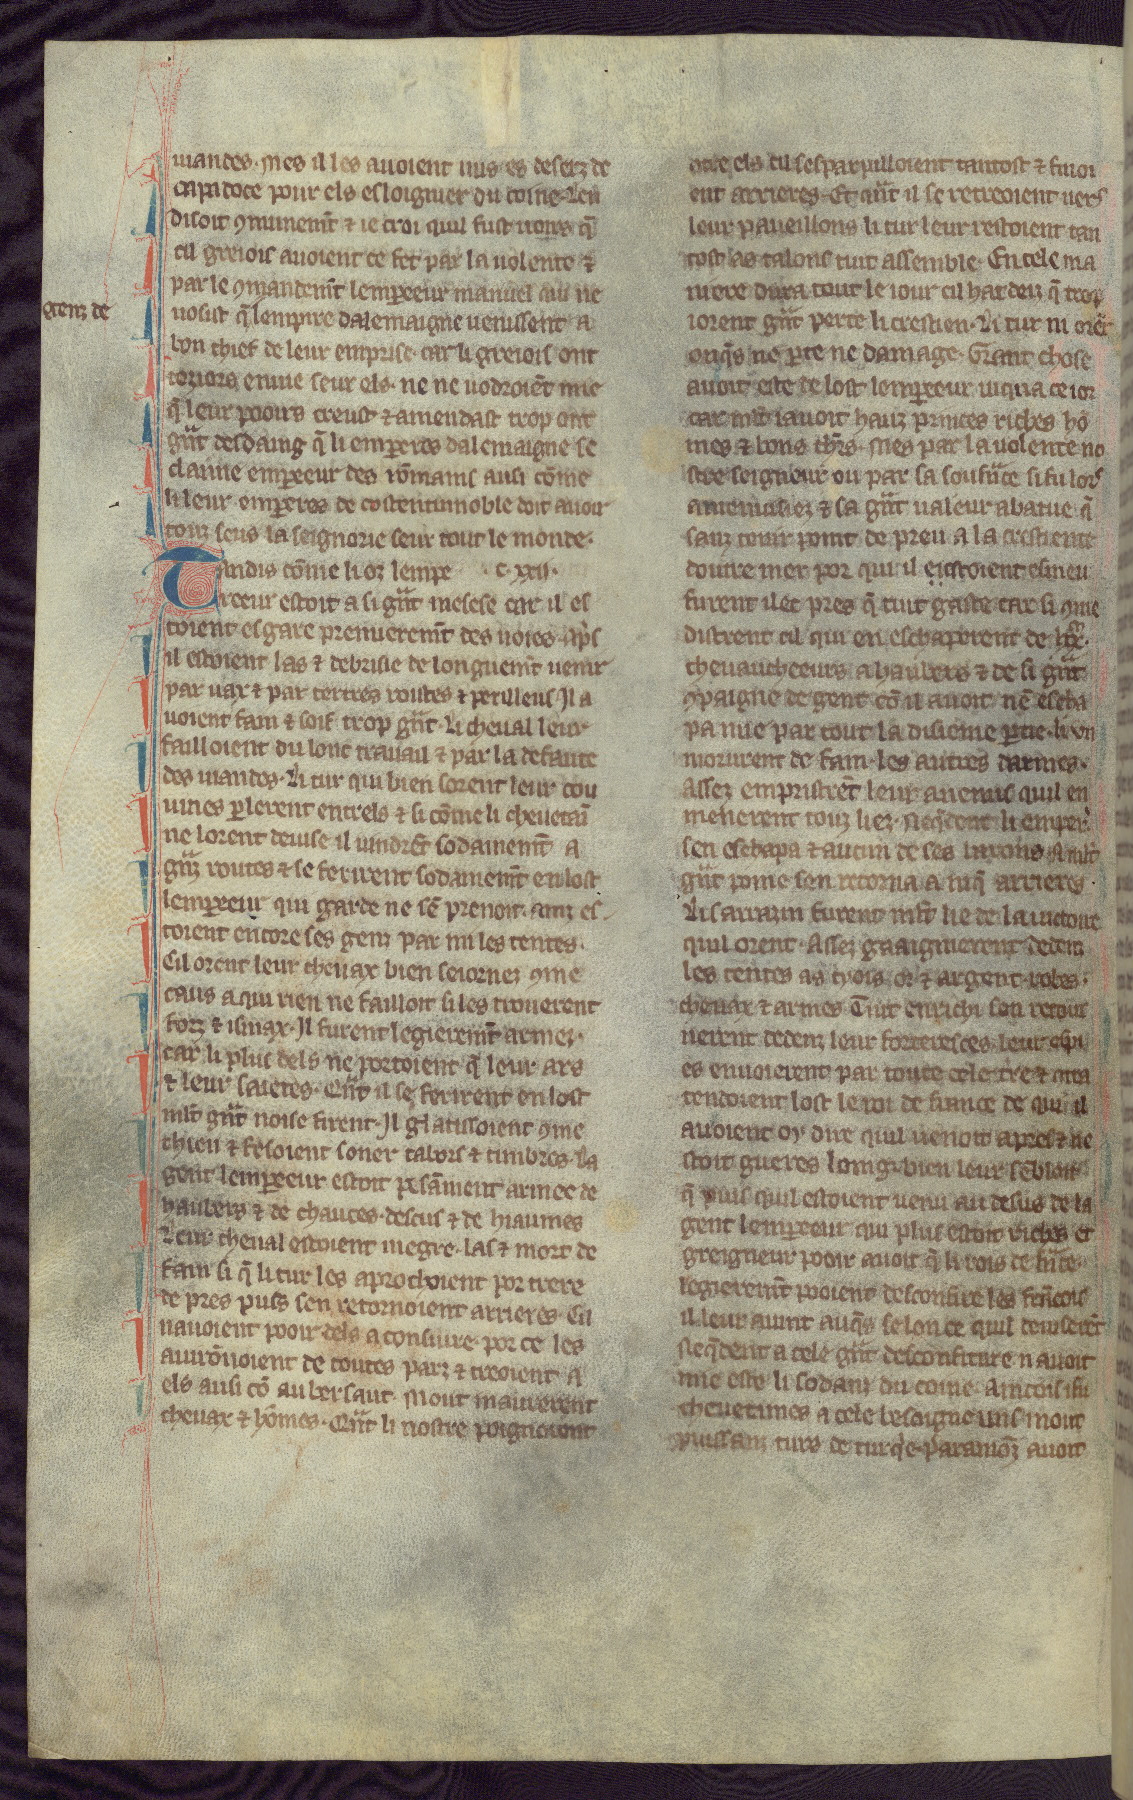 uiandes. mes il les auoient mis es deserz de
capadoce pour els esloignier du coine. Len
disoit 9munemt̃ ⁊ ie croi quil fust uoirs q̃
cil greiois auoient ce fet par la uolente ⁊
par le 9mandemt̃ lempereeur manuel qui ne
gienz de
uolsit q̃ lempire dalemaigne uenissent a
bon chief de leur emprise. car li greiois ont
torjors enuie seur els. ne ne uodroiẽt mie
q̃ leur pooirs creust ⁊ amendast trop ont
gñt desdaing q̃ li emperes dalemaigne se
claime empereeur des rõmains ausi cõme
li leur emperes de costentinnoble doit auoir
touz seus la seignorie seur tout le monde.
Tandis cõme li oz lempe .c.xxii.
reeur estoit a si gñt mesese car il es
toient esgare premieremt̃ des uoies. ap̃s
il estoient las ⁊ debrisie de longuemt̃ uenir
par uax ⁊ par tertres routes ⁊ perilleus. Il a
uoient fain ⁊ soif trop gñt. Li cheual leur
failloient du lonc trauail ⁊ par la defaute
des uiandes. Li tur qui bien sorent leur cou
uines p̱lerent entrels ⁊ si cõme li cheuetaĩ
ne lorent deuise il uindrẽt sodainemt̃ a
gñz routes ⁊ se ferirent sodainemt̃ en lost
lempereeur qui garde ne sẽ prenoit. ainz es
toient encore ses genz par mi les tentes.
Cil orent leur cheuax bien seiornez 9me
caus a qui rien ne failloit si les trouerent
forz ⁊ isniax. Il furent legieremt̃ armez.
car li plus dels ne portoient q̃ leur ars
⁊ leur saietes. Qñt il se ferirent en lost
ml̃t gñt noise firent. Il glatissoient 9me
chien ⁊ fesoient soner tabors ⁊ timbres. La
gent lempereeur estoit pesãment armee de
haubers ⁊ de chauces. descus ⁊ de hiaumes
Leur cheual estoient megre. las ⁊ mort de
fain si q̃ li tur les aprochoient por trere
de pres puis sen retornoient arrieres. Cil
nauoient pooir dels a consiure. por ce les
auirõnoient de toutes parz ⁊ treoient a
els ausi cõ au bersaut. Mout nauerent
cheuax ⁊ hõmes. Qñt li nostre poignoient
otre els cil sesparpilloient tantost ⁊ fuioi
ent arrieres. Et qñt il se retreoient uers
leur paueillons li tur leur restoient tan
tost as talons tuit assemble. En cele ma
niere dura tout le iour cil hardeiz q̃ trop
iorent gñt perte li crestien. Li tur ni orẽt
onq̃s ne p̱te ne damage. Grant chose
auoit este de lost lempereeur iuqua ce ior
car ml̃t iauoit hauz princes riches hõ
mes ⁊ bons ch̃rs. Mes par la uolente no
stre seigneur ou par sa soufrãce si fu lors
aneantisiez ⁊ sa gñt ualeur abatue q̃
sanz tenir point de preu a la crestiente
doutre mer por qui il estoient esmeu
furent il et pres q̃ tuit gaste car si 9me
distrent cil qui en eschaperent de lxx.
cheuaucheeurs a haubers ⁊ de si gñt
9paigne de gent cõ il auoit nẽ escha
pa mie par tout la disieme p̱tie. li un
morurent de fain. les autres darmes.
Assez empristrẽt leur anemis quil en
menerent touz liez. Neq̃dent li emper̃
sen eschapa ⁊ aucun de ses barons. A ml̃t
gñt poine sen retorna a niq̃ arrieres.
Li sarrazin furent ml̃t lie de la uictoire
quil orent. Assez gaaignierent dedenz
les tentes as tyois or ⁊ argent. robes.
cheuax ⁊ armes. Tuit enrichi sen retour
nerent dedenz leur forteresces. leur espi
es enuoierent par toute cele tr̃e ⁊ ata
tendoient lost le roi de france de qui il
auoient oy dire quil uenoit apres ⁊ ne
stoit gueres loing. bien leur sẽbloit
q̃ puis quil estoient uenu au desus de la
gent lempereeur qui plus estoit riches et
greigneur pooir auoit q̃ li rois de frñce.
legieremt̃ pooient desconfire les frñcois
il leur auint auq̃s selon ce quil deuiserẽt
Neq̃dent a cele gñt desconfiture n auoit
mie este li sodans du coine. Aincois ifu
cheuetaines a cele besoigne uns mout
puissanz turs de turq̃e. paramoz auoit